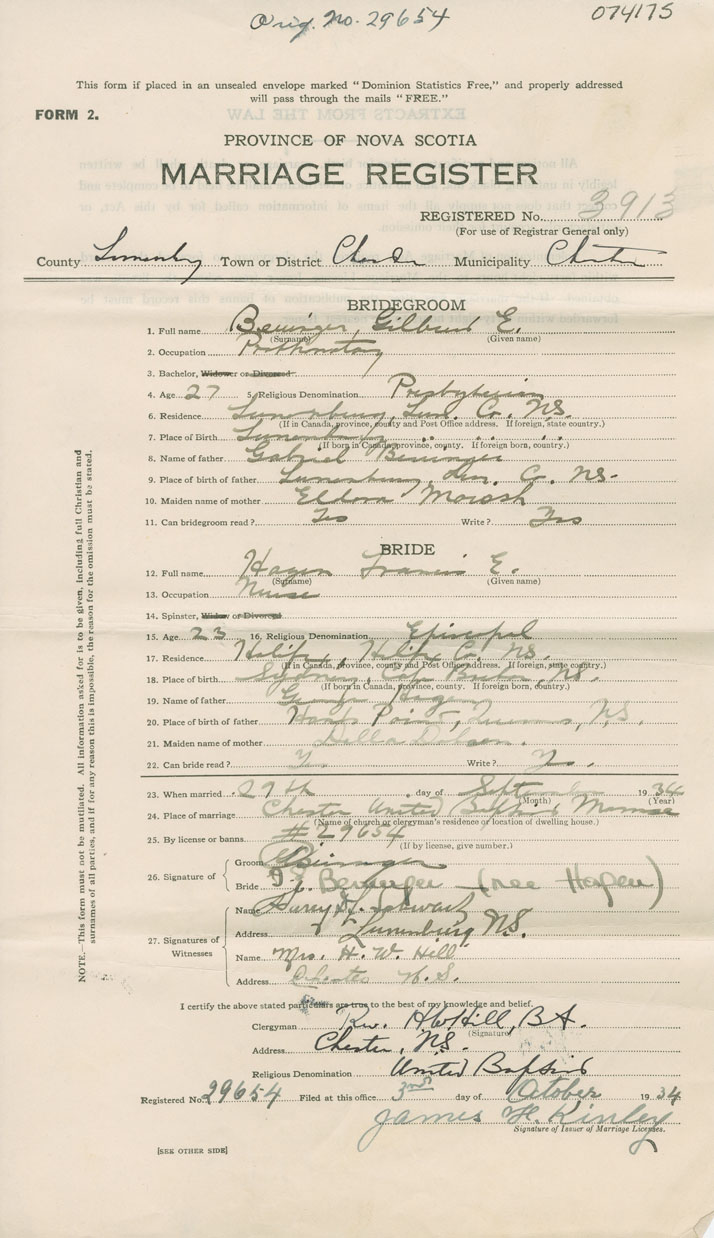 Orig. No. 29654
074175
This form if placed in an unsealed envelope marked "Dominion Statistics Free," and properly addressed
will pass through the mails "FREE."
FORM 2.
PROVINCE OF NOVA SCOTIA
MARRIAGE REGISTER
REGISTERED No. 3913
(For use of Registrar General only)
County Lunenburg Town or District Chester Municipality Chester
BRIDEGROOM
1. Full name Beuinger, Gilbert E.
(Surname) (Given name)
2. Occupation Prothonotary
3. Bachelor, Widower or Divorced
4. Age 27 5. Religious Denomination Presbyterian
6. Residence Lunenburg, Lun. Co. N.S.
(If in Canada, province, county and Post Office address. If foreign, state country.)
7. Place of Birth Lunenburg " " "
(If born in Canada, province, county. If foreign born, country.)
8. Name of father Gabriel Beuinger
9. Place of birth of father Lunenburg, Lun. Co. N.S.
10. Maiden name of mother Eldora Morash
11. Can bridegroom read? Yes Write? Yes
BRIDE
12. Full name Hagen Francis E.
(Surname) (Given name)
13. Occupation Nurse
14. Spinster, Widow or Divorced
15. Age 23 16. Religious Denomination Episcopal
17. Residence Halifax, Halifax Co. N.S.
(If in Canada, province, county and Post Office address. If foreign, state country.)
18. Place of birth Sydney, Cape Breton, N.S.
(If born in Canada, province, county. If foreign born, country.)
19. Name of father George Hagen
20. Place of birth of father Point, Queens, N.S.
21. Maiden name of mother Della Dobson.
22. Can bride read? Y. Write? Y.
23. When married 29th day of September 1934
(Month) (Year)
24. Place of marriage Chester United Baptist Manse
(Name of church or clergyman's residence or location of dwelling house.)
25. By license or banns #29654
(If by license, give number.)
26. Signature of
Groom Beuinger
Bride Beuinger (nee Hagen)
27. Signatures of Witnesses
Name Schwartz
Address Lunenburg N.S.
Name Mrs. H. W. Hill
Address Chester N.S.
I certify the above stated particulars are true to the best of my knowledge and belief.
Clergyman Rev. H W Hill, B.A.
(Signature)
Address Chester, N.S.
Religious Denomination United Baptist
Registered No. 29654 Filed at this office 3rd day of October 1934
James H. Kinley
Signature of Issuer of Marriage Licenses.
[SEE OTHER SIDE]
NOTE.—This form must not be mutilated. All information asked for is to be given, including full Christian and
surnames of all parties, and if for any reason this is impossible, the reason for the omission must be stated.